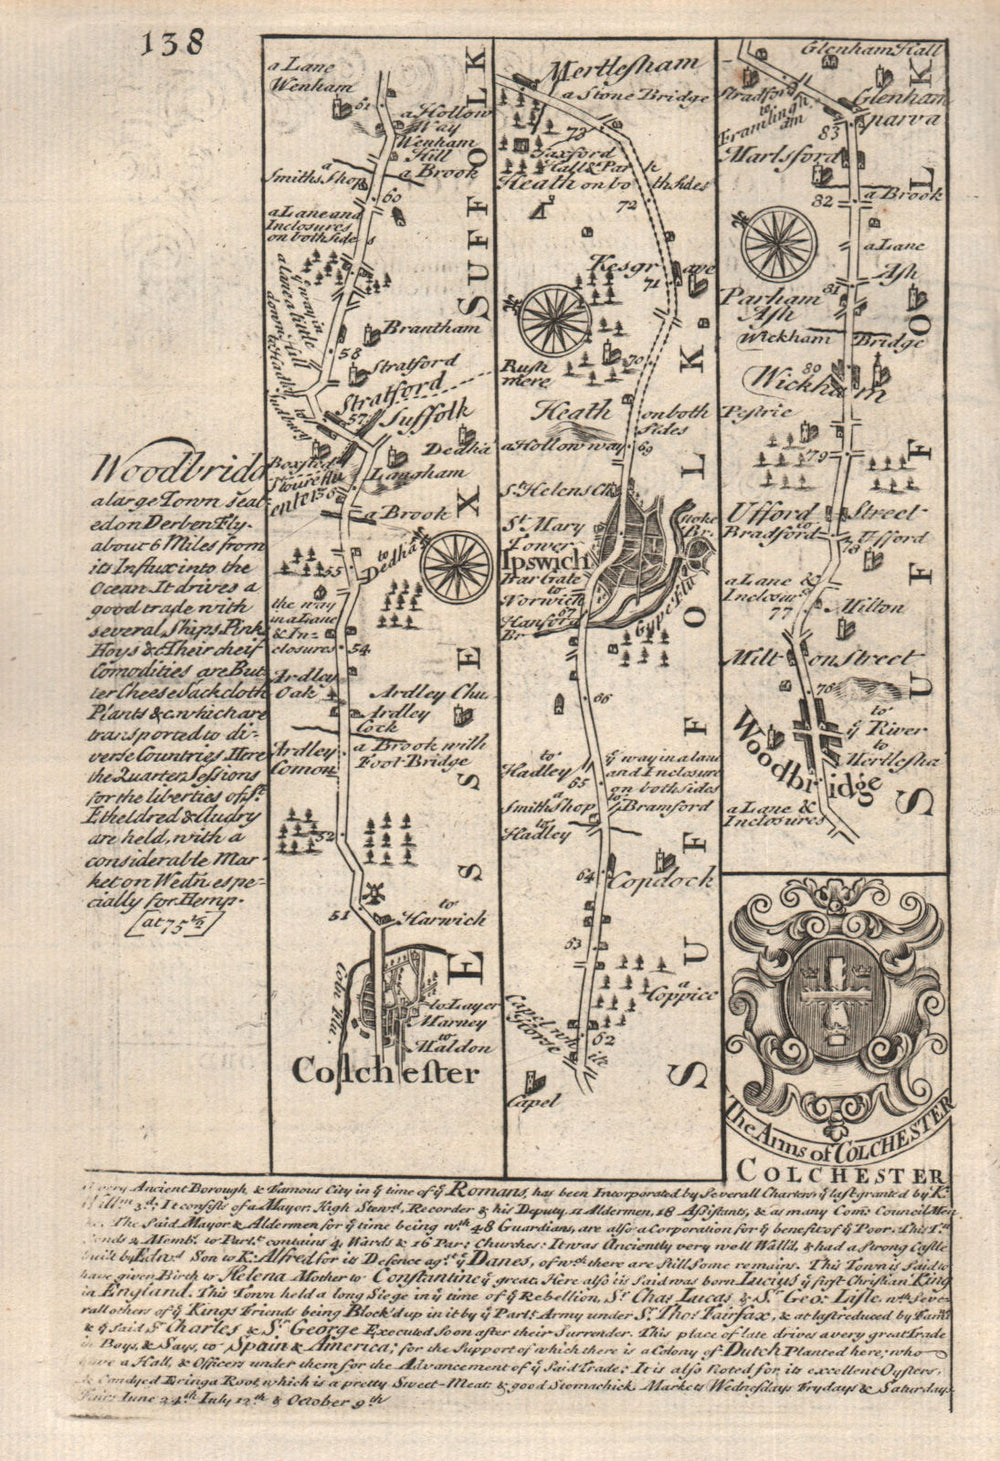 138
Woodbridg
a large Town seat=
ed on Derben Flu.
about 6 Miles from
its Influx into the
Ocean. It drives a
good trade with
several Ships Pinks
Hoys & c Their cheif
Comodities are But
ter Cheese Sackcloth
Plants &c. which are
transported to di-
verse Countries. Here
the Quarter Sessions
for the liberties of St.
Etheldred & Audry
are held, with a
considerable Mar=
ket on Wedn. espe=
cially for Hemp.
[at 75 ½]
a Lane
Wenham
61
a Hollow
Way
Wenham
Hill
a
Smiths Shop
a Brook
60
a Lane and
Inclosures
on both sides
ye way in
a lane a little
down Hill
to Hadley
Brantham
58
Stratford
Stratford
Suffolk
57
to
Sudbury
Dedha
Boxsted
Langham
Stoure flu
enters
56
a Brook
to Dedham
55
the way
in a Lane
& In=
closures
54
Ardley
Oak
Ardley Chu.
Ardley
Cock
Ardley
Comon
a Brook with
Foot Bridge
52
51
to
Harwich
Coln Flu.
to Layer
Marney
to
Maldon
Colchester
ESSEX
SUFFOLK
Mertlesham
a Stone Bridge
73
Foxford
Hall & Park
Heath on both sides
72
Kesgrave
71
Rush
mere
70
Heath on both
sides
a Hollow way
69
St. Helens Chu
St. Mary
Tower
Stoke
Br.
Ipswich
Bar Gate
to
Norwich
67
Hanford
Br
Gype Flu
66
to
Hadley
ye way in a lane
and Inclosure
on both sides
65
a
Smiths Shop
to
Bramford
to
Hadley
64
Copdock
53
a
Coppice
Capel wh
scarse
62
Capel
SUFFOLK
Glenham Hall
Stradford
to
Framlingh
am
Glenham
parva
83
Marlsford
a Brook
82
a Lane
Ash
81
Parham
Ash
Wickham Bridge
80
Wickham
Pestrie
79
Ufford Street
to
Bradford
78
Ufford
a Lane &
Inclosurs
77
Milton
Milton Street
76
to
ye River
to
Mertlesha
Woodbridge
a Lane &
Inclosures
SUFFOLK
The Arms of COLCHESTER
COLCHESTER
very Ancient Borough, & Famous City in ye time of ye Romans, has been Incorporated by Severall Charters ye last granted by K.
Willm. 3d.; It consists of a Mayor, High Stewd., Recorder & his Deputy, 11 Aldermen, 18 Assistants, & as many Com. Council Men
&c. The Said Mayor & Aldermen for ye time being wth 48 Guardians, are also a Corporation for ye benefit of ye Poor. This Tn.
sends 2 Memb. to Parlt. contains 4 Wards & 16 Par: Churches: It was Anciently very well Wall'd, & had a strong Castle
built by Edwd. Son to K. Alfred for its Defence agst. ye Danes, of wch there are still some remains. This Town is Said to
have given Birth to Helena Mother to Constantine ye great. Here also is Said was born Lucius ye first Christian King
in England. This Town held a long Siege in ye time of ye Rebellion, Sr. Chas. Lucas, & Sr. Geo. Lisle, wth Seve=
rall others of ye Kings Friends being Block'd up in it by ye Parlt. Army under Sr. Tho: Fairfax, & at last reduced by Famn.
& ye Said Sr. Charles & Sr. George Executed soon after their Surrender. This place of late drives a very great Trade
in Boys, & Says, to Spain & America; for the Support of which there is a Colony of Dutch Planted here, who
have a Hall, & Officers under them for the Advancement of ye Said Trade: It is also Noted for its excellent Oysters,
& Candyed Eringa Root, which is a pretty Sweet-Meat & good Stomachick. Markets Wednesdays Frydays & Saturdays
Fairs June 24th July 12th & October 9th